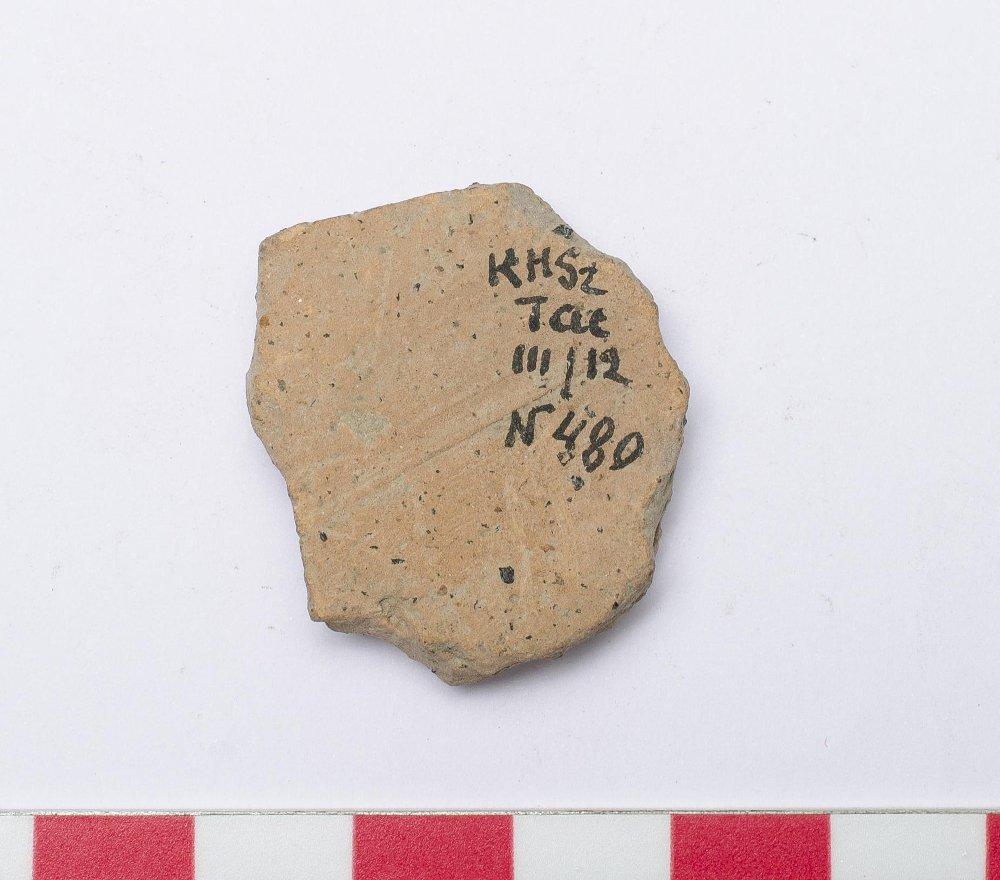 KHSz
Tae
III/12
N480